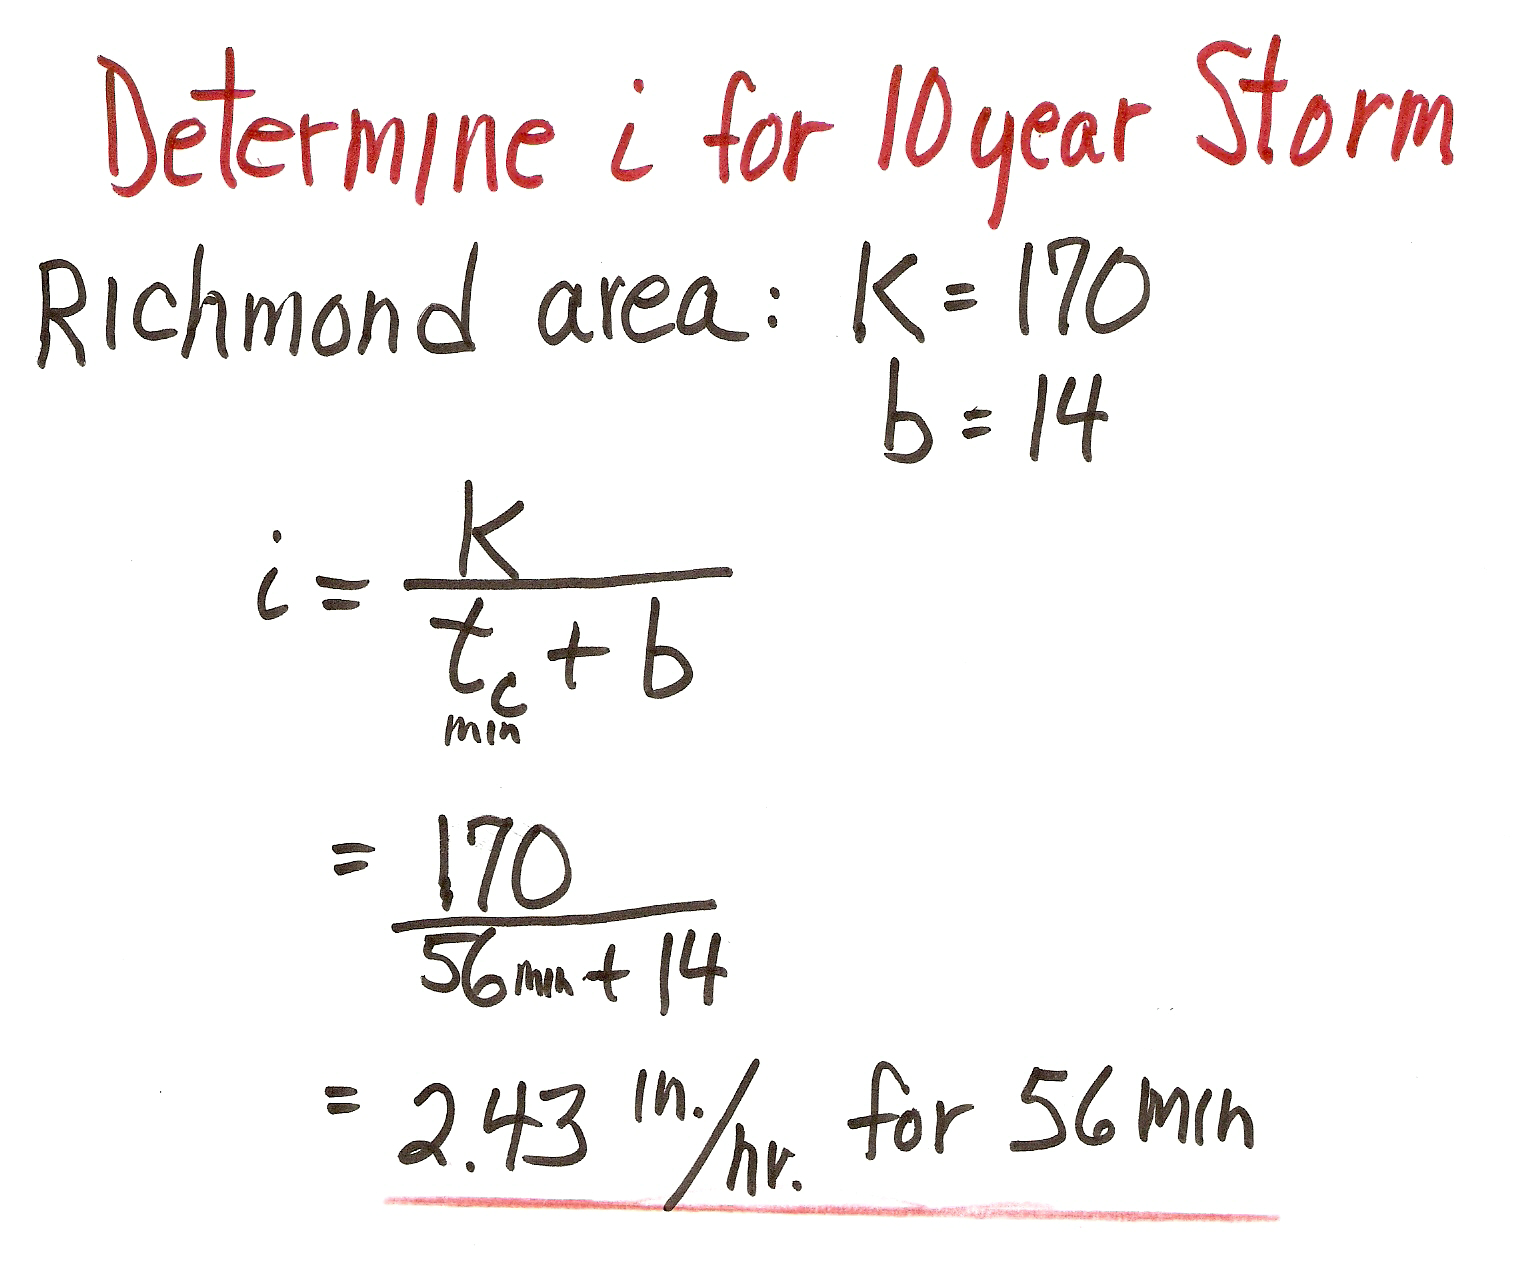 Determine i for 10 year Storm
Richmond area: K = 170
b = 14
i = K
tc + b
min
= 170
56 min + 14
= 2.43 in./hr. for 56 min